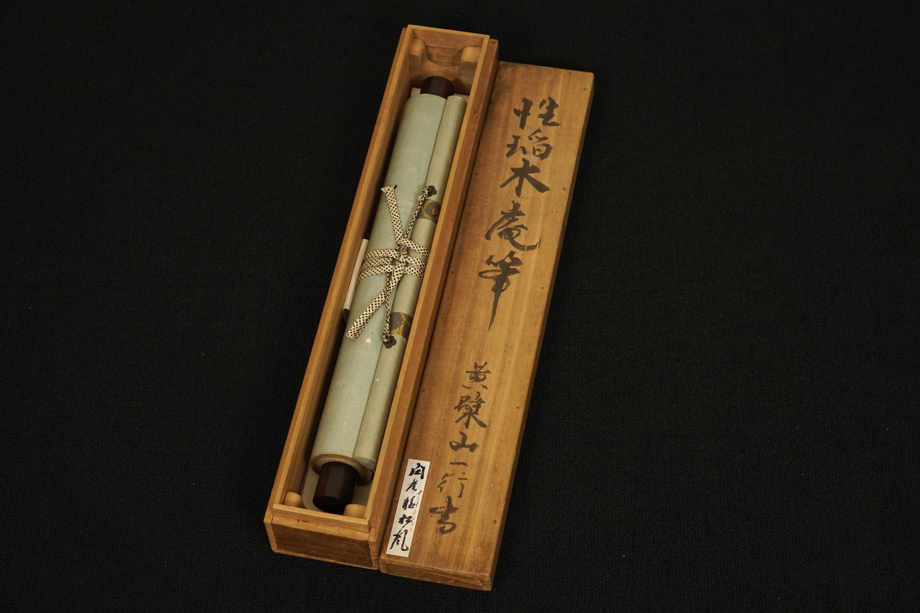 性瑫木庵筆
黄檗山一行書
松風